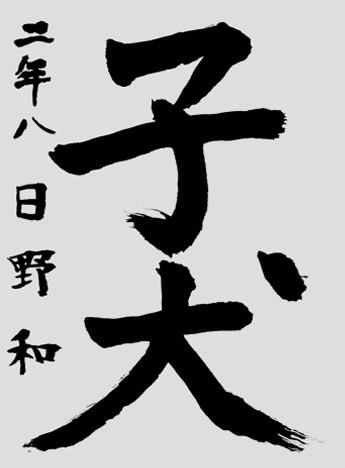 子犬
二年八日野和